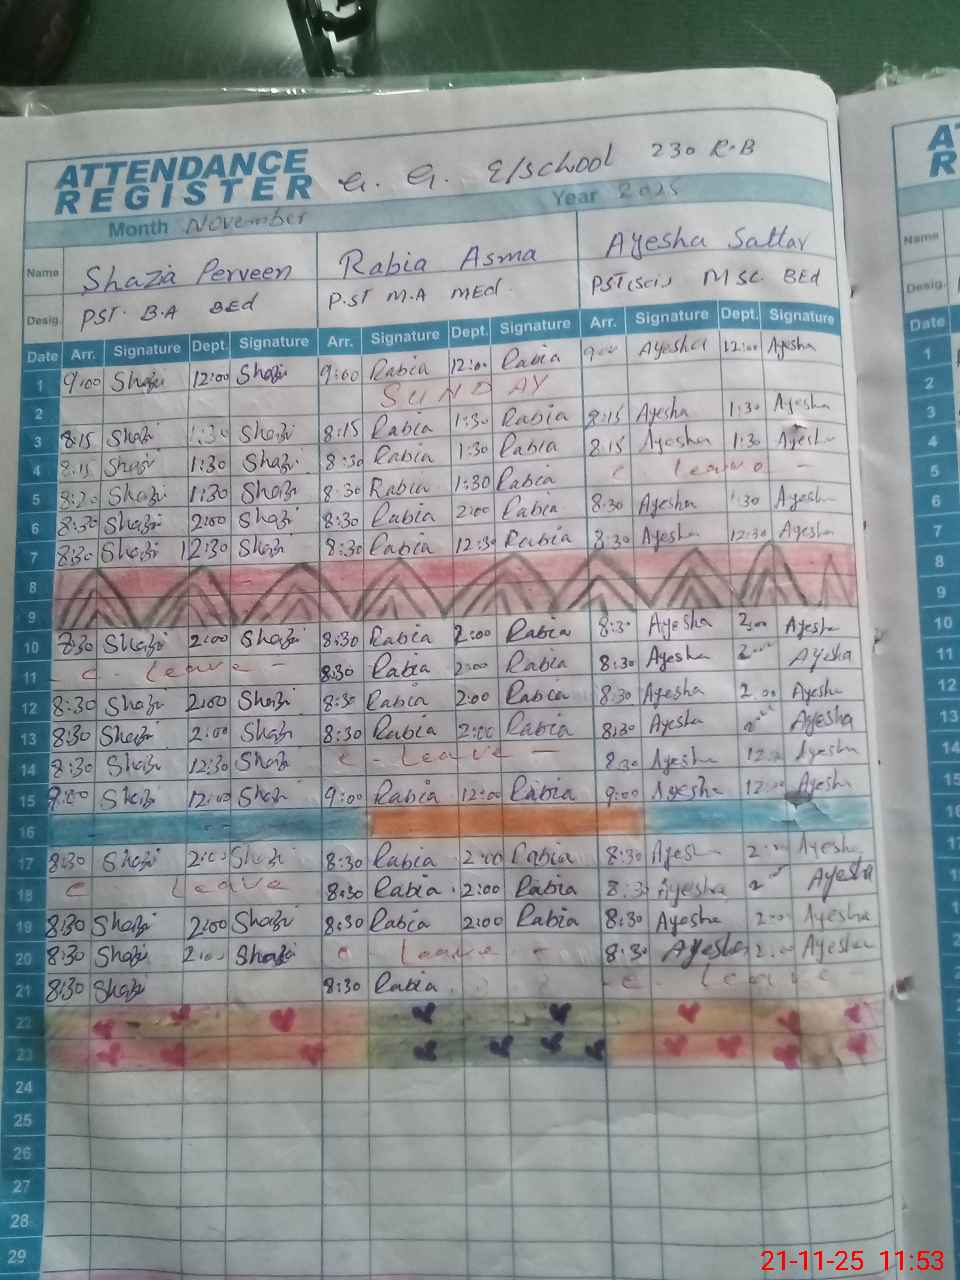 ATTENDANCE REGISTER G. G. E/School 230 R.B
Month November Year 2025
Name Shazia Perveen Rabia Asma Ayesha Sattar
Desig. PST. B.A BEd P.ST M.A MEd. PST(Sci) M SC. BEd
Date Arr. Signature Dept. Signature Arr. Signature Dept. Signature Arr. Signature Dept. Signature
1 9:00 Shazi 12:00 Shazi 9:00 Rabia 12:00 Rabia 9:00 Ayesha 12:00 Ayesha
2 SUNDAY
3 8:15 Shazi 1:30 Shazi 8:15 Rabia 1:30 Rabia 8:15 Ayesha 1:30 Ayesha
4 8:15 Shazi 1:30 Shazi 8:30 Rabia 1:30 Rabia 8:15 Ayesha 1:30 Ayesha
5 8:20 Shazi 1:30 Shazi 8:30 Rabia 1:30 Rabia C. leave -
6 8:30 Shazi 2:00 Shazi 8:30 Rabia 2:00 Rabia 8:30 Ayesha 1:30 Ayesha
7 8:30 Shazi 12:30 Shazi 8:30 Rabia 12:30 Rabia 8:30 Ayesha 12:30 Ayesha
8
9
10 Shazi 2:00 Shazi 8:30 Rabia 2:00 Rabia 8:30 Ayesha 2:00 Ayesha
11 - C. leave - 8:30 Rabia 2:00 Rabia 8:30 Ayesha Ayesha
12 8:30 Shazi 2:00 Shazi 8:30 Rabia 2:00 Rabia 8:30 Ayesha 2:00 Ayesha
13 8:30 Shazi 2:00 Shazi 8:30 Rabia 2:00 Rabia 8:30 Ayesha Ayesha
14 8:30 Shazi 12:30 Shazi C - Leave - 8:30 Ayesha Ayesha
15 9:00 Shazi 12:00 Shazi 9:00 Rabia 12:00 Rabia 9:00 Ayesha 12:00 Ayesha
16
17 8:30 Shazi 2:00 Shazi 8:30 Rabia 2:00 Rabia 8:30 Ayesha Ayesha
18 C Leave 8:30 Rabia 2:00 Rabia 8:30 Ayesha Ayesha
19 8:30 Shazi 2:00 Shazi 8:30 Rabia 2:00 Rabia 8:30 Ayesha 2:00 Ayesha
20 8:30 Shazi 2:00 Shazi C Leave - 8:30 Ayesha 2:00 Ayesha
21 8:30 Shazi 8:30 Rabia - C. leave -
22
23
24
25
26
27
28
29
Name
Desig.
Date
1
2
3
4
5
6
7
8
9
10
11
12
13
14
15
21-11-25 11:53